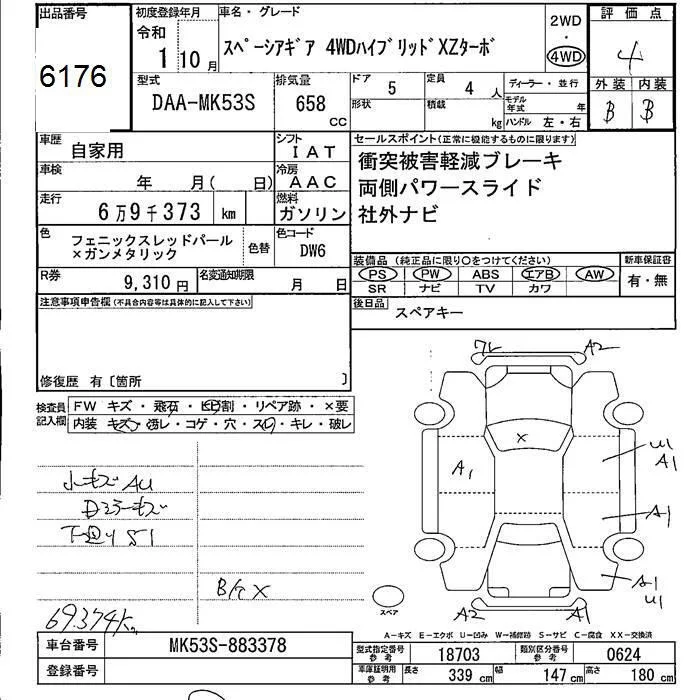 出品番号
6176
初度登録年月
令和
1 10月
車名・グレード
スペーシアギア 4WDハイブリッドXZターボ
2WD
・
4WD
評価点
4
外装 内装
B B
型式
DAA-MK53S
排気量
658
CC
ドア 5
定員 4 人
形状
積載 kg
ディーラー・並行
モデル年式 年
ハンドル 左・右
車歴 自家用
シフト
IAT
車検 年 月( 日)
冷房
AAC
走行
6万9千373 km
燃料
ガソリン
色
フェニックスレッドパール
×ガンメタリック
色替
色コード
DW6
R券
9,310円
名変通知期限
月 日
セールスポイント(正常に機能するものに限ります)
衝突被害軽減ブレーキ
両側パワースライド
社外ナビ
装備品(純正品に限り○をつけてください)
PS PW ABS エアB AW
SR ナビ TV カワ
新車保証書
有・無
後日品
スペアキー
注意事項申告欄(不具合内容等は具体的に記入して下さい)
修復歴 有〔箇所 〕
検査員記入欄
FW キズ・飛石・ヒビ割・リペア跡・×要
内装 キズ・汚レ・コゲ・穴・スレ・キレ・破レ
小キズ AU
Dミラーキズ
下廻り S1
B/ケ X
69.374km
ワレ
A2
X
A1
U1
A1
A1
A1
U1
A2
A1
スペア
A-キズ E-エクボ U-凹み W-補修跡 S-サビ C-腐食 XX-交換済
車台番号
MK53S-883378
登録番号
型式指定番号 参考
18703
類別区分番号 参考
0624
車庫証明用 参考
長さ 339 cm
幅 147 cm
高さ 180 cm